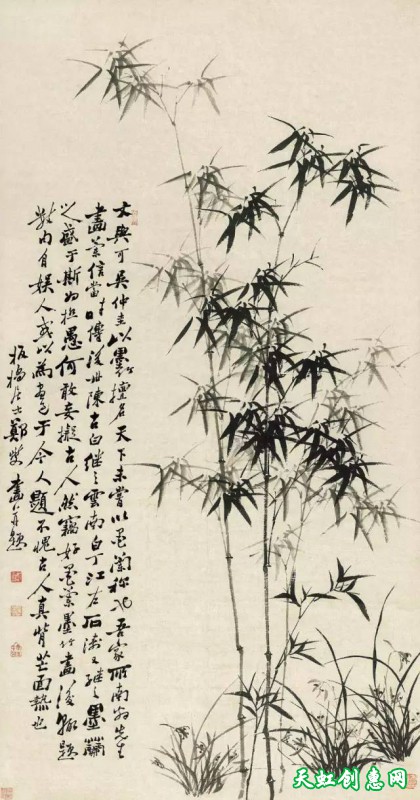 文與可吳仲圭以墨竹擅名天下未嘗以墨蘭稱也吾家所南翁先生
畫蘭信當時傳後世陳古白繼之雲南白丁江左石濤又繼之墨蘭
之盛于斯為極愚何敢妄擬古人然竊好墨蘭墨竹畫後輒題
自娛人或以為畫于今人題不愧古人真背芒面熱也
板橋居士鄭燮畫并題
天虹创惠网